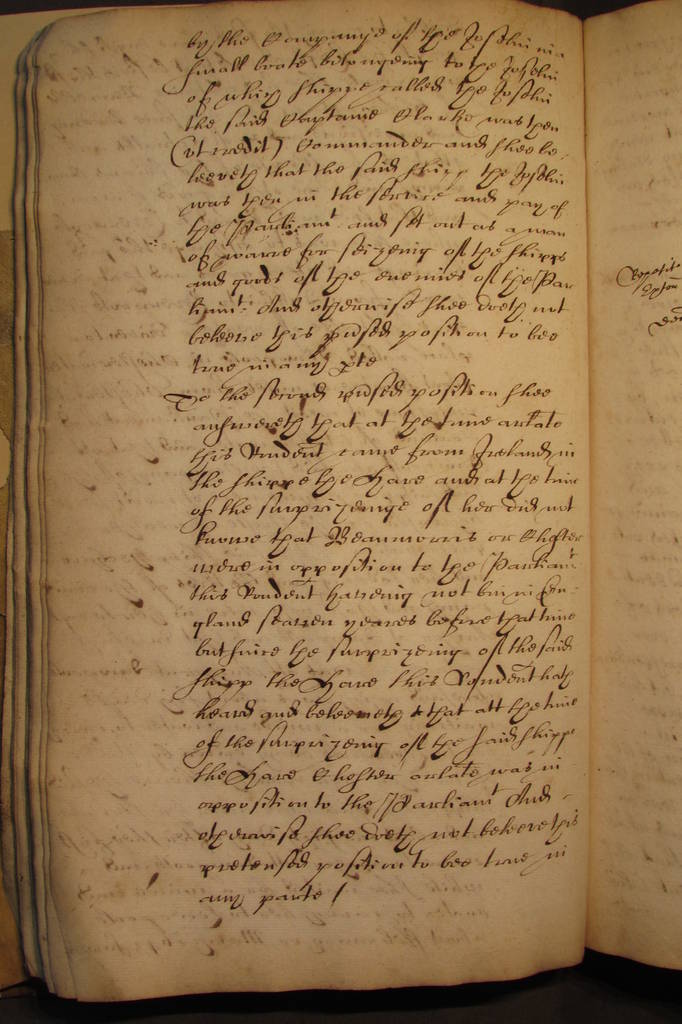 by the Companye of the Joselin in a
small boate belongeing to the Joselin
of which shippe called the Joselin
the said Captaine Clarke was then
(ut credit) Commander and shee be-
leeveth that the said shipp the Joselin
was then in the service and pay of
the Parliamt and set out as a man
of warre for seizeing of the shipps
and goods of the enemies of the Par
liamt. And otherwise shee doeth not
beleeve this position to bee
true in any pte
To the second position shee
answereth that at the time arlate
this Rondent came from Ireland in
the shippe the Hare and at the time
of the surprizeinge of her did not
knowe that Beaumorris or Chester
were in opposition to the Parliamt
this Rondent haveing not bin in En-
gland seaven yeares before that time
but since the surprizeing of the said
shipp the Hare this Rondent hath
heard and beleeveth that att the time
of the surprizeing of the said shippe
the Hare Chester arlate was in
opposition to the Parliamt And
otherwise shee doeth not beleeve this
pretensed position to bee true in
any parte /